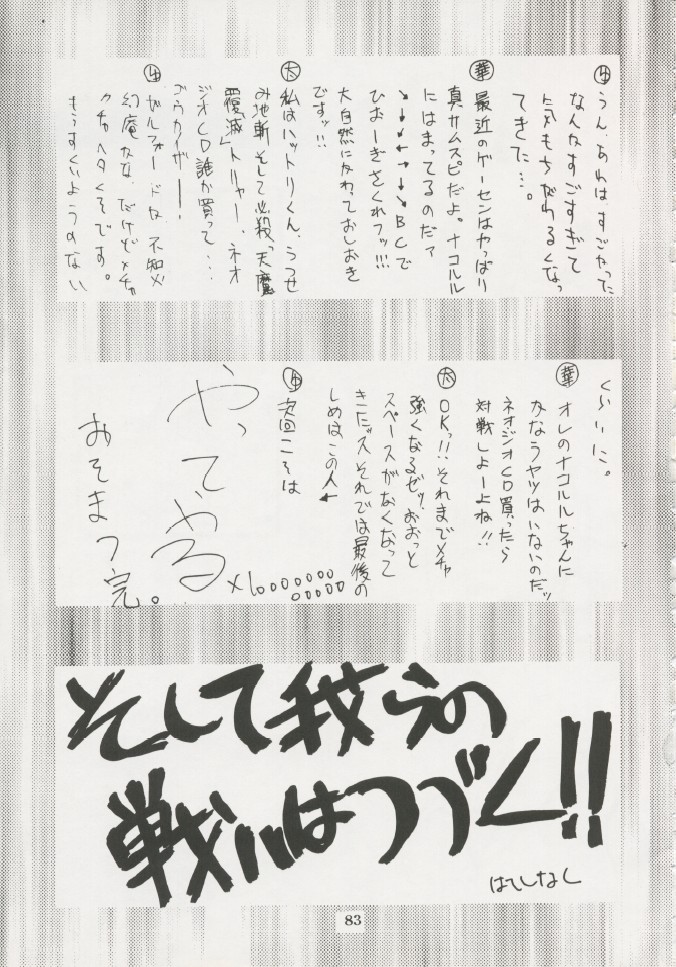 牛 うん、あれは、すごかった
なんかすごすぎて
気もちがわるくなっ
てきた…。
華 最近のゲーセンはやっぱり
真サムスピだよ。ナコルル
にはまってるのだァ
↘→↓↙←→↘→↓BCで
ひおーぎざくれフッ!!!
大自然にかわっておしおき
ですッ!!
太 私はハットリくん、うつせ
み地斬そして必殺“天魔
覆滅”トリャー、ネオ
ジオCD誰か買って…
ゴウカイザー―!
牛 ガルフォードな、不知火
幻庵なな、だけどメチャ
クチャヘタくそです。
もうすくいようのない
くらいに。
華 オレのナコルルちゃんに
かなうヤツはいないのだッ
ネオジオCD買ったら
対戦しよーよね!!
太 OKっ!!それまでメチャ
強くなるぜッ、おおっと
スペースがなくなって
きたッスそれでは最後の
しめはこの人←
牛 次回こそは
やってやる
×10000000
00000
おそまつ完。
そして我らの
戦いはつづく!!
はてしなく
83